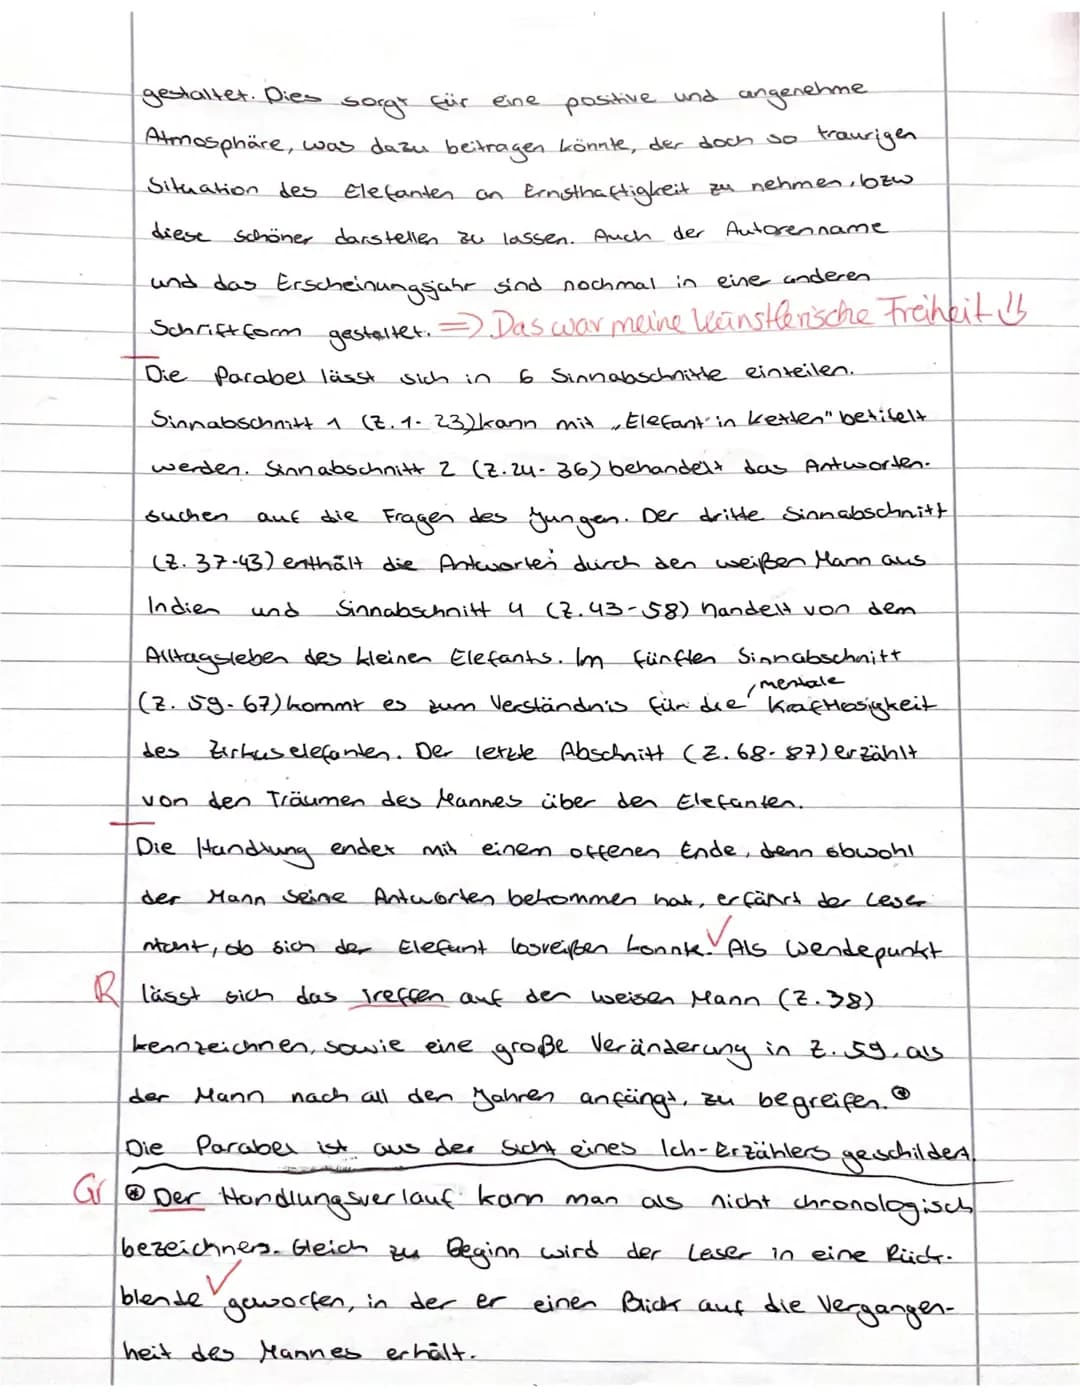 gestaltet. Dies sorgt für eine positive und angenehme
Atmosphäre, was dazu beitragen könnte, der doch so traurigen
Situation des Elefanten an Ernsthaftigkeit zu nehmen, bzw
diese schöner darstellen zu lassen. Auch der Autorenname
und das Erscheinungsjahr sind nochmal in einer anderen
Schriftform gestaltet. => Das war meine künstlerische Freiheit
Die Parabel lässt sich in 6 Sinnabschnitte einteilen.
Sinnabschnitt 1 (Z. 1-23) kann mit „Elefant in Ketten" betitelt
werden. Sinnabschnitt 2 (Z. 24-36) behandelt das Antworten-
suchen auf die Fragen des Jungen. Der dritte Sinnabschnitt
(Z. 37-43) enthält die Antworten durch den weißen Mann aus
Indien und Sinnabschnitt 4 (Z. 43-58) handelt von dem
Alltagsleben des kleinen Elefants. Im fünften Sinnabschnitt
(Z. 59-67) kommt es zum Verständnis für die mentale Kraftlosigkeit
des Zirkuselefanten. Der letzte Abschnitt (Z. 68-87) erzählt
von den Träumen des Mannes über den Elefanten.
Die Handlung endet mit einem offenen Ende, denn obwohl
der Mann seine Antworten bekommen hat, erfährt der Leser
nicht, ob sich der Elefant losreißen konnte. ✓ Als Wendepunkt
R lässt sich das Treffen auf den weisen Mann (Z. 38)
kennzeichnen, sowie eine große Veränderung in Z. 59, als
der Mann nach all den Jahren anfängt, zu begreifen. ⊛
Die Parabel ist aus der Sicht eines Ich-Erzählers geschildert.
Gr ⊛ Der Handlungsverlauf kann man als nicht chronologisch
bezeichnen. Gleich zu Beginn wird der Leser in eine Rück-
blende ✓ geworfen, in der er einen Blick auf die Vergangen-
heit des Mannes erhält.